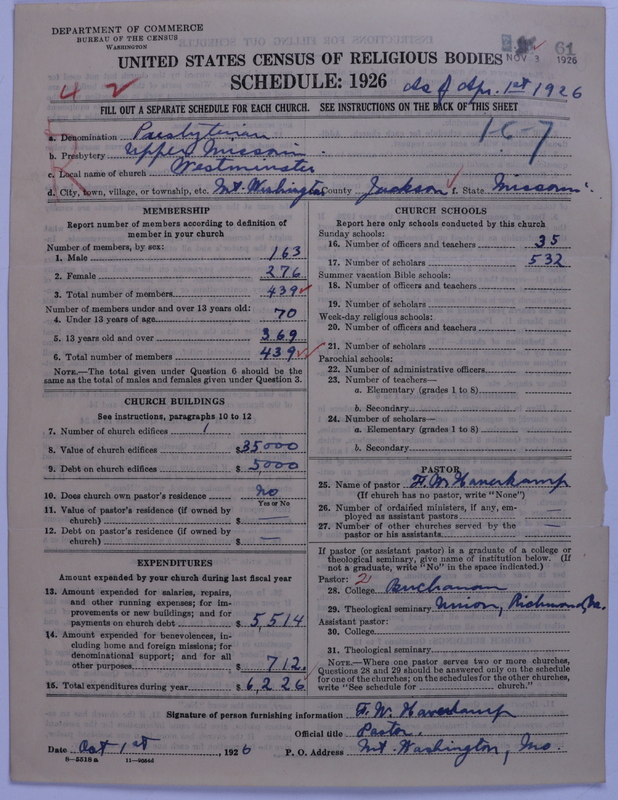 DEPARTMENT OF COMMERCE
BUREAU OF THE CENSUS
WASHINGTON
61
NOV 3 1926
UNITED STATES CENSUS OF RELIGIOUS BODIES
SCHEDULE: 1926
As of Apr. 1st 1926
4 2
FILL OUT A SEPARATE SCHEDULE FOR EACH CHURCH. SEE INSTRUCTIONS ON THE BACK OF THIS SHEET
16-7
a. Denomination Presbyterian
b. Presbytery Upper Missouri
c. Local name of church Westminster
d. City, town, village, or township, etc. Mt. Washington County Jackson f. State Missouri
MEMBERSHIP
Report number of members according to definition of
member in your church
Number of members, by sex:
1. Male 163
2. Female 276
3. Total number of members 439
Number of members under and over 13 years old:
4. Under 13 years of age 70
5. 13 years old and over 369
6. Total number of members 439
NOTE.—The total given under Question 6 should be
same as the total of males and females given under Question 3.
CHURCH BUILDINGS
See instructions, paragraphs 10 to 12
7. Number of church edifices 1
8. Value of church edifices $35000
9. Debt on church edifices $ 5000
10. Does church own pastor's residence No
Yes or No
11. Value of pastor's residence (if owned by
church) $ —
12. Debt on pastor's residence (if owned by
church) $ —
EXPENDITURES
Amount expended by your church during last fiscal year
13. Amount expended for salaries, repairs,
and other running expenses; for im-
provements or new buildings; and for
payments on church debt $ 5,514
14. Amount expended for benevolences, in-
cluding home and foreign missions; for
denominational support; and for all
other purposes $ 712.
15. Total expenditures during year $ 6226
CHURCH SCHOOLS
Report here only schools conducted by this church
Sunday schools:
16. Number of officers and teachers 35
17. Number of scholars 532
Summer vacation Bible schools:
18. Number of officers and teachers
19. Number of scholars
Week-day religious schools:
20. Number of officers and teachers
21. Number of scholars
Parochial schools:
22. Number of administrative officers
23. Number of teachers—
a. Elementary (grades 1 to 8)
b. Secondary
24. Number of scholars—
a. Elementary (grades 1 to 8)
b. Secondary
PASTOR
25. Name of pastor F. W. Haverkamp
(If church has no pastor, write "None")
26. Number of ordained ministers, if any, em-
ployed as assistant pastors —
27. Number of other churches served by the
pastor or his assistants —
If pastor (or assistant pastor) is a graduate of a college or
theological seminary, give name of institution below. (If
not a graduate, write "No" in the space indicated.)
Pastor: 2
28. College Buchanan
29. Theological seminary Union, Richmond, Va.
Assistant pastor:
30. College
31. Theological seminary
NOTE.—Where one pastor serves two or more churches,
Questions 28 and 29 should be answered only on the schedule
for one of the churches; on the schedules for the other churches,
write "See schedule for church."
Signature of person furnishing information F. W. Haverkamp
Official title Pastor.
Date Oct 1st 1926 P. O. Address Mt. Washington, Mo.
8—5518 a 11—90546